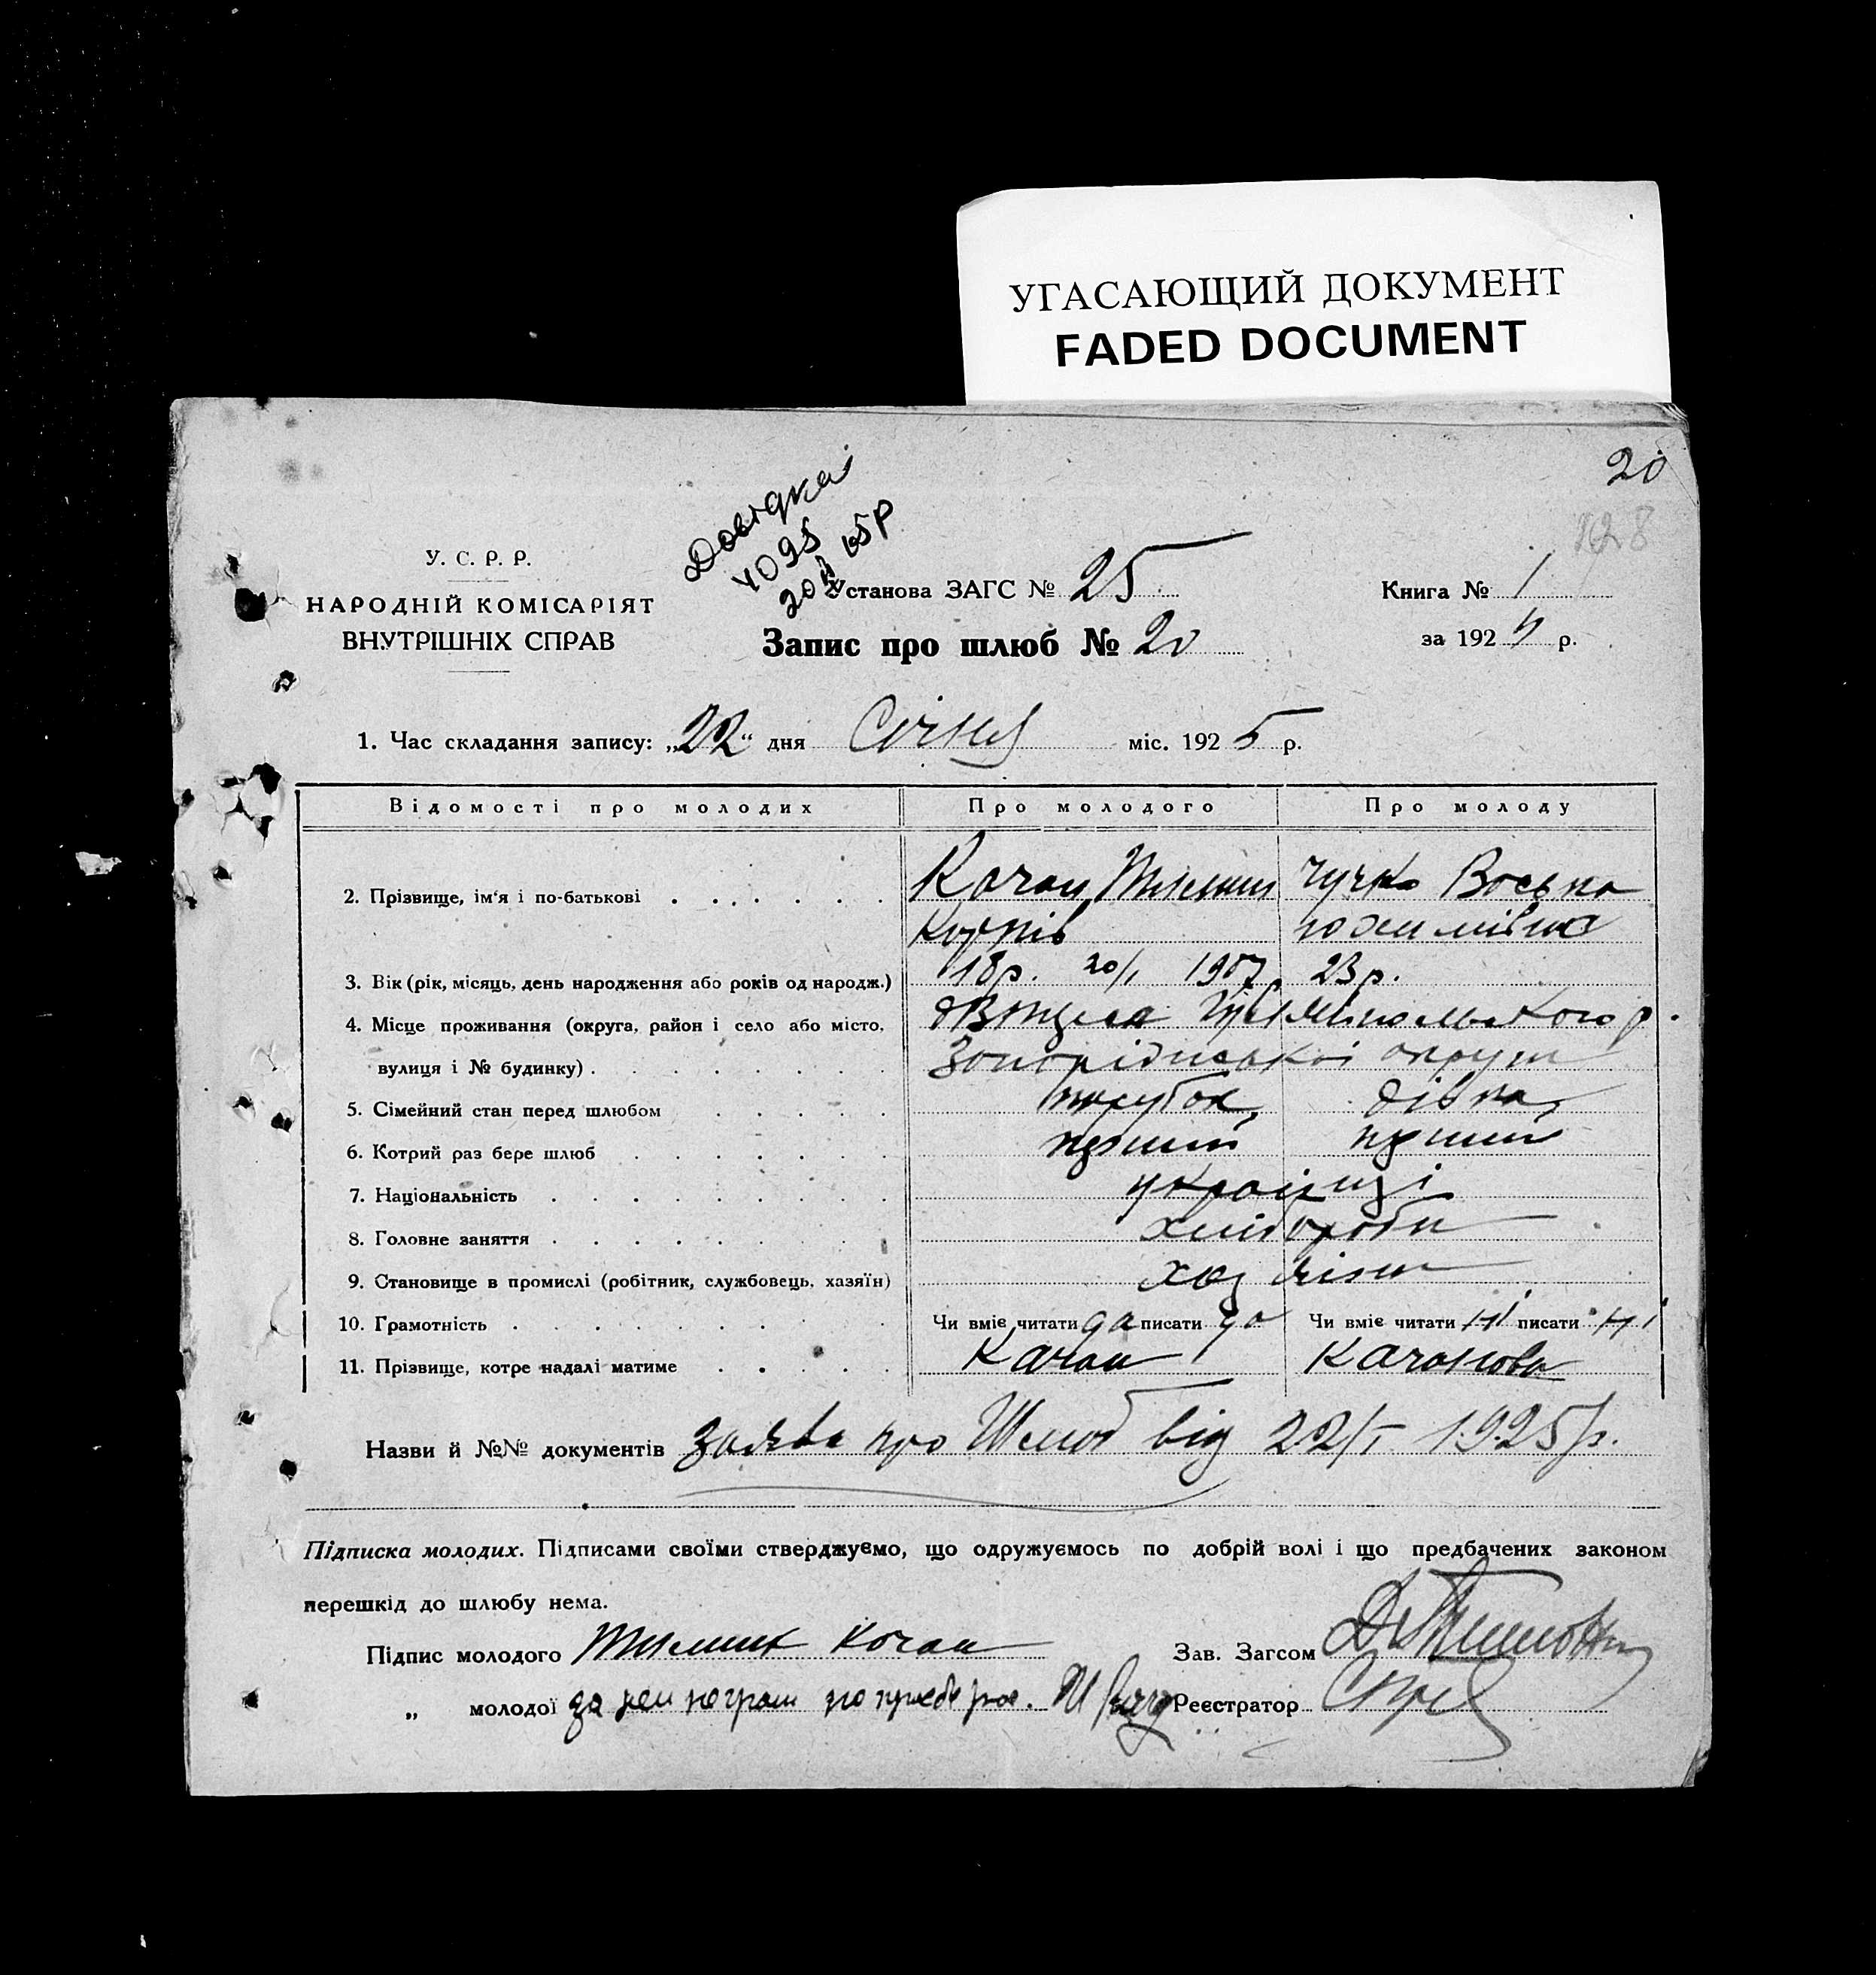 УГАСАЮЩИЙ ДОКУМЕНТ
FADED DOCUMENT
20
128
Довідка
4095
65р
У. С. Р. Р.
НАРОДНІЙ КОМІСАРІЯТ
ВНУТРІШНІХ СПРАВ
Установа ЗАГС № 25
Запис про шлюб № 20
Книга № 1
за 192 р.
1. Час складання запису: „22“ дня Січня міс. 1925 р.
Відомості про молодих Про молодого Про молоду
2. Прізвище, ім'я і по-батькові Качан Чучко
3. Вік (рік, місяць, день народження або років од народж.) 18р. 20/I 1907 23р.
4. Місце проживання (округа, район і село або місто,
вулиця і № будинку) округи
5. Сімейний стан перед шлюбом парубок дівка
6. Котрий раз бере шлюб перший перший
7. Національність українці
8. Головне заняття хлібороби
9. Становище в промислі (робітник, службовець, хазяїн)
10. Грамотність Чи вміє читати да писати да Чи вміє читати ні писати ні
11. Прізвище, котре надалі матиме Качан Качанова
Назви й №№ документів заява про Шлюб від 22/I 1925 р.
Підписка молодих. Підписами своїми стверджуємо, що одружуємось по добрій волі і що предбачених законом
перешкід до шлюбу нема.
Підпис молодого Качан
Зав. Загсом
„ молодої
Реєстратор